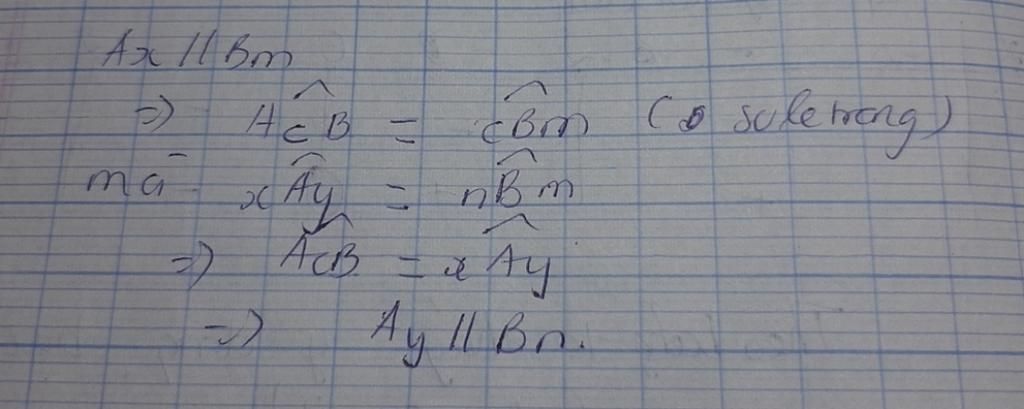 Ax // Bm
=> ACB = CBm (so le trong)
mà xAy = nBm
=> ACB = xAy
=> Ay // Bn.